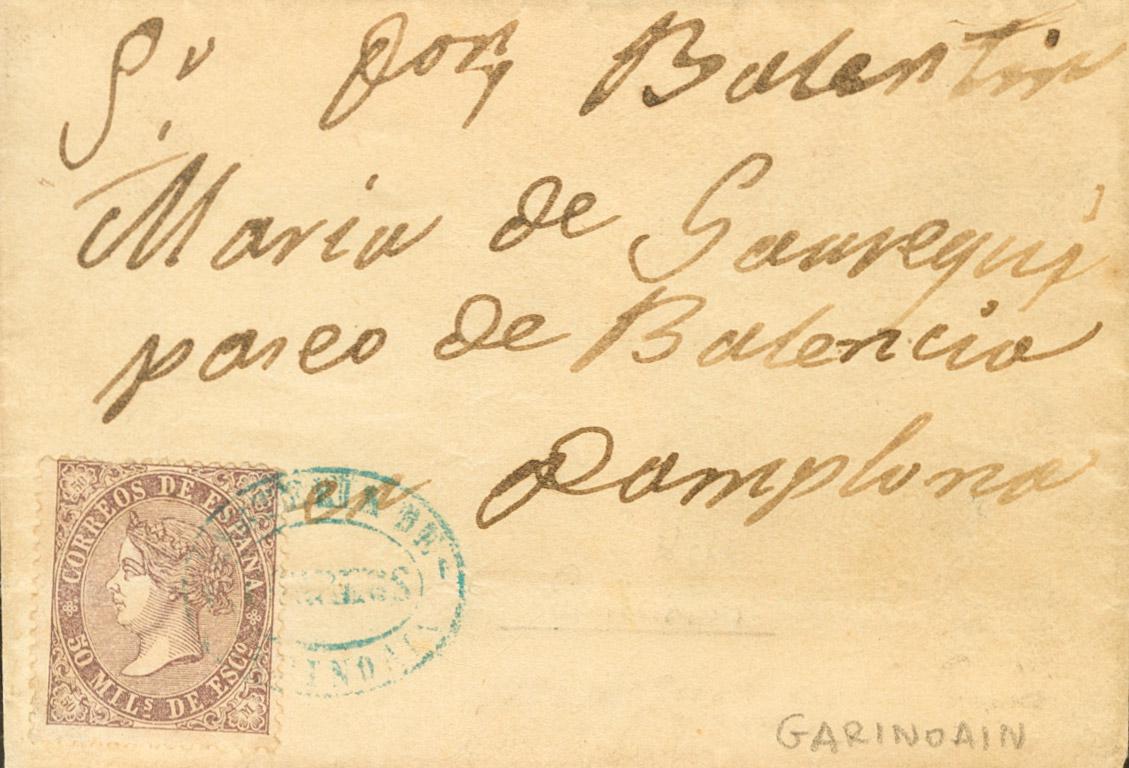 Sr. Don Balentin
Maria de Gauregui
paseo de Balencia
en Pamplona
CORREOS DE ESPAÑA
50 MILs DE ESCo
DE
GARINOAIN